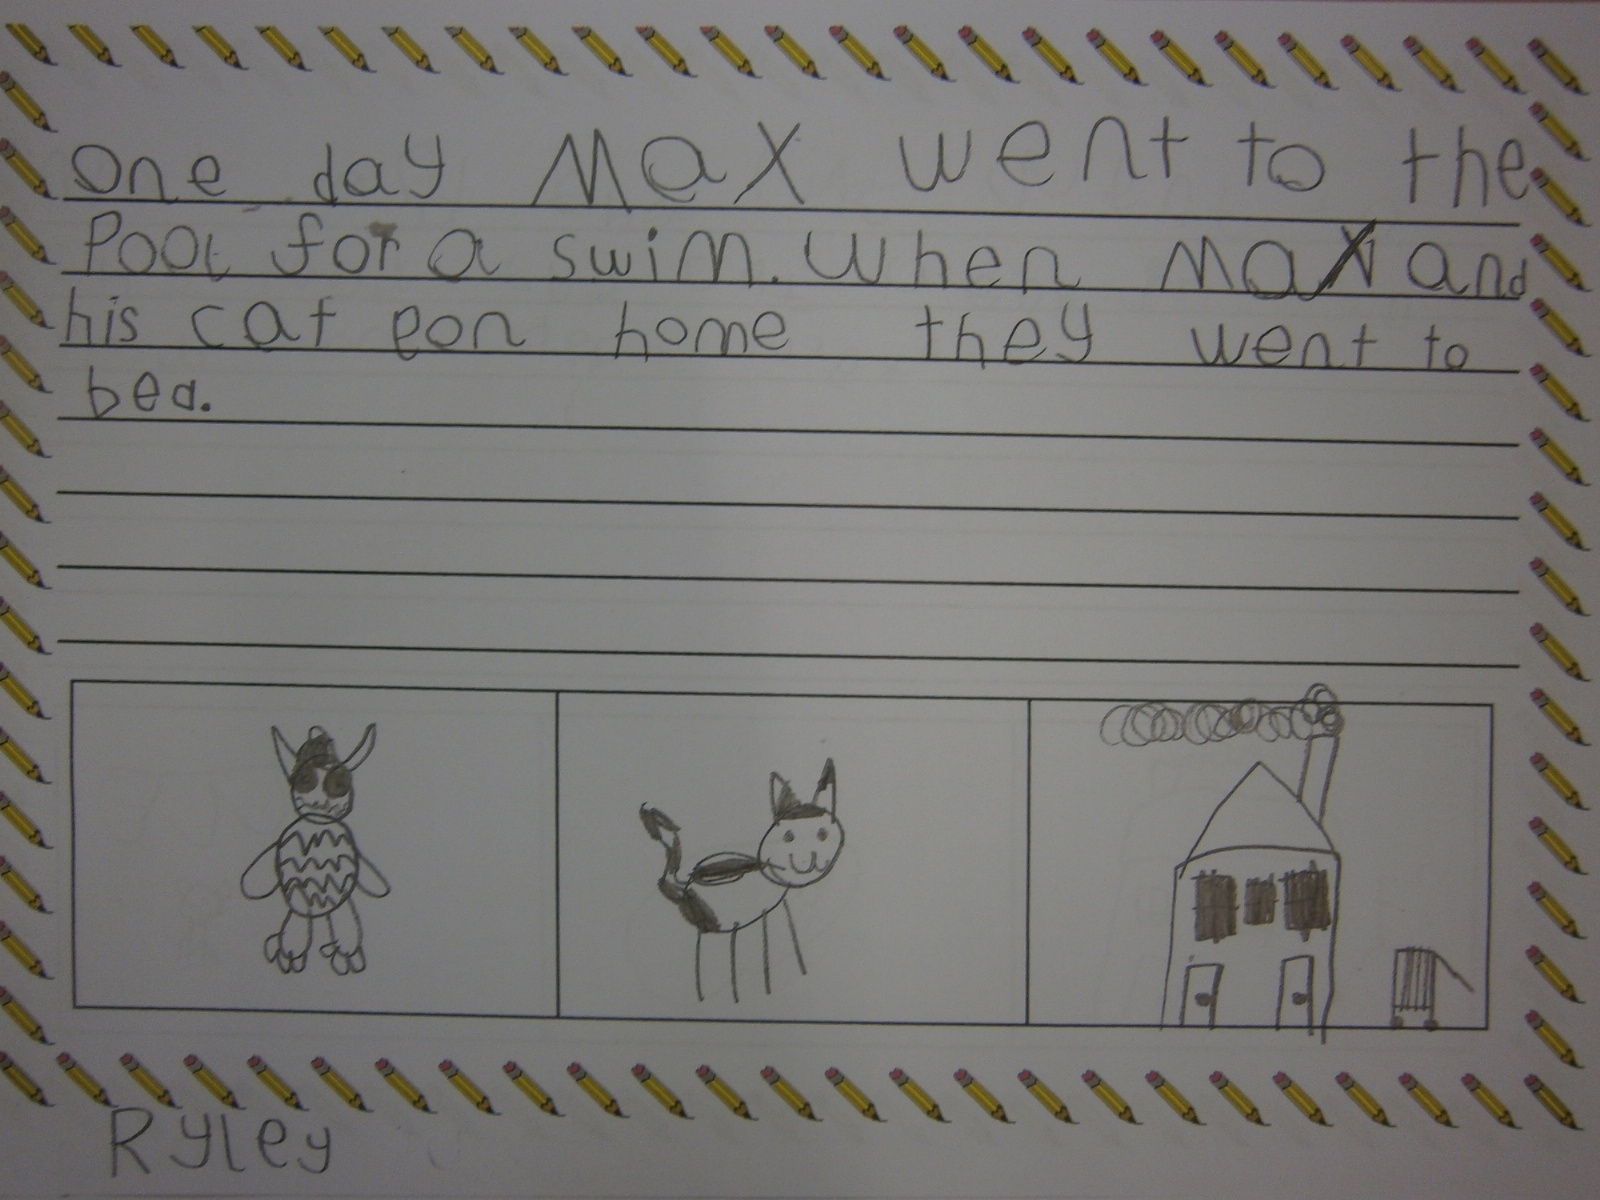 One day Max went to the
Pool for a swim. When Max and
his cat eon home they went to
bed.
Ryley